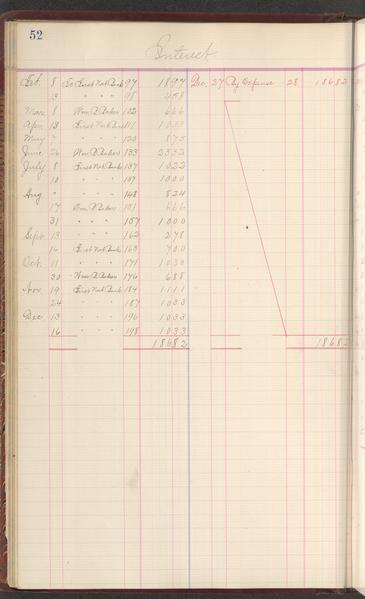 52
Interest
Feb. 8 To First Nat. Bank 97 18 97 Dec. 27 By Expense 28 186 82
" " " 98
Mar. 8 Wm. D. 102 6 66
Apr. 13 First Nat. Bank 111 10 33
May " " " 120 8 75
June 26 Wm. D. 133 23 33
July 8 First Nat. Bank 10 33
10 " " " 137 10 00
Aug " " " 148 8 24
17 Wm. D. 151 6 66
31 " " " 157 10 00
Sept. 13 " " " 162 2 78
16 First Nat. Bank 163 7 00
Oct. 11 " " " 171 10 33
20 Wm. D. 176 6 88
Nov. 19 First Nat. Bank 184 11 11
24 " " " 187 10 33
Dec 13 " " " 196 10 33
16 " " " 198 10 33
186 82 186 82